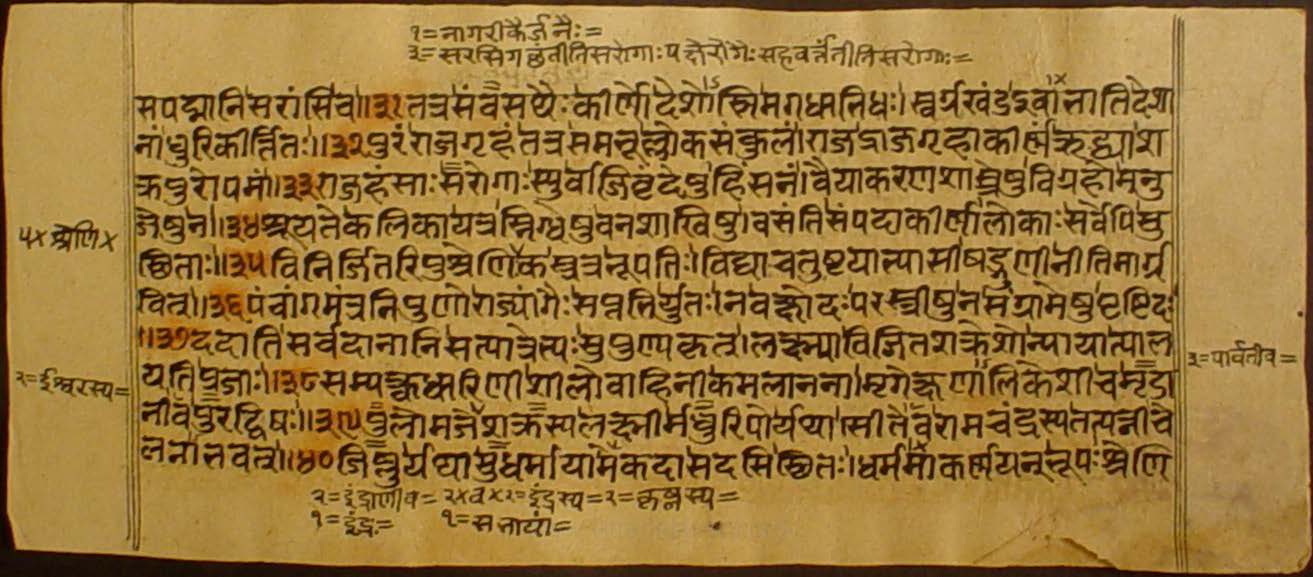 १=नागरीकैर्जनैः=
३=सरसिगछंतीतिसरोगाः पक्षेरोगैः सहवर्त्तंतीतिसरोगाः=
मपद्मानिसरांसिव॥३१तत्रसंवसथैः कीर्णोदेशोस्तिमगधाभिधः।स्वर्ग्रखंडइवाभातिदेशा
नांधुरिकीर्त्तितः॥३२पुरंराजगृहंतत्रसमभूल्लोकसंकुलं।राजद्राजगृहाकीर्णऋद्ध्याश
क्रपुरोपमं॥३३राजहंसाः सरोगाः स्युर्वाजिष्टंदेषुहिंसनं।वैयाकरणशास्त्रेषुविग्रहोमनु
जेषुन॥३४श्रूयतेकलिकायत्रस्निग्धषुवनशाखिषु।वसंतिसंपदाकीर्णालोकाः सर्वेपिसु
स्थिताः॥३५विनिर्जितरिपुश्रेणिकस्तत्रभूपतिः।विद्याचतुष्टयाभ्यासीषड्गुणीनीतिमार्ग्र
वित्॥३६पंचांगमंत्रनिपुणोराज्यांगैः सप्तभिर्युतः।नवक्षोदः परस्त्रीषुनसंग्रामेषुपृष्टिदः
॥३७ददातिसर्वदानानिसत्पात्रेभ्यः सुपुण्यकृत्।लक्ष्म्याविजितशक्रेशोन्यायात्पाल
यतिप्रजाः॥३८सम्यक्त्वधारिणीशीलोवाहिनीकमलानना।मृगेक्षणालिकेशीचमृडा
नीवपुरद्विषः॥३९पुलोमजेशक्रस्यलक्ष्मीर्मधुरिपोर्यथा।सीतेवरामचंद्रस्यतत्पत्नीचे
लनाभवत्॥४०जिष्णुर्यथासुधर्मायामेकदासदसिस्थितः।धर्ममाकर्णयन्भूपः श्रेणि
५×श्रेणि×
२=ईश्वरस्य=
३=पार्वतीव=
२=इंद्राणीव= २×व×२=इंद्रस्य=२=कृष्णस्य=
१=इंद्रः= १=सभायां=